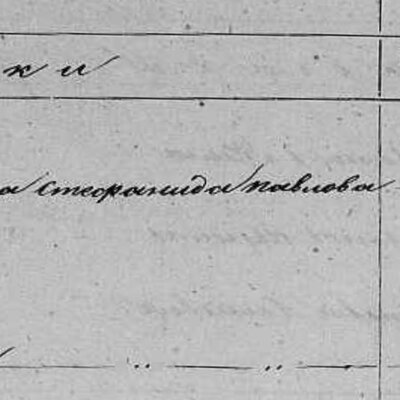 ки
а Стефанида Павлова